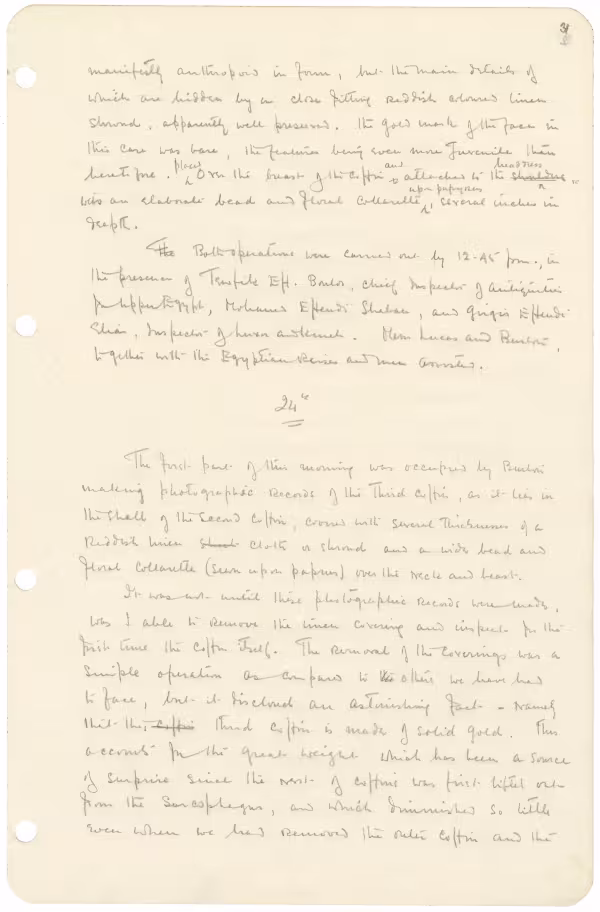 31
manifestly anthropoid in form, but the main details of
which are hidden by a close fitting reddish coloured linen
shroud, apparently well preserved. The gold mask of the face in
this case was bare, the features being even more juvenile than
heretofore. placed Over the breast of the coffin and attached to the shoulders headdress
was an elaborate bead and floral collarette, upon papyrus several inches in
depth.
The Both operations were carried out by 12-45 pm., in
the presence of Tewfik Eff. Boulos, Chief Inspector of Antiquities
for Upper Egypt, Mohamed Effendi Shaban, and Girgis Effendi
Elias, Inspector of Luxor and Keneh. Lucas and Burton,
together with the Egyptian Reises and men assisted.
24th
The first part of this morning was occupied by Burton
making photographic records of the Third Coffin, as it lies in
the shell of the Second Coffin, covered with several thicknesses of a
reddish linen cloth or shroud and a wide bead and
floral collarette (sewn upon papyrus) over the neck and breast.
It was not until these photographic records were made,
was I able to remove the linen covering and inspect for the
first time the coffin itself. The removal of the coverings was a
simple operation as compared to the others we have had
to face, but it disclosed an astonishing fact - namely
that the coffin third coffin is made of solid gold. This
accounts for the great weight which has been a source
of surprise since the nest of coffins was first lifted out
from the Sarcophagus, and which diminished so little
even when we had removed the outer coffin and the